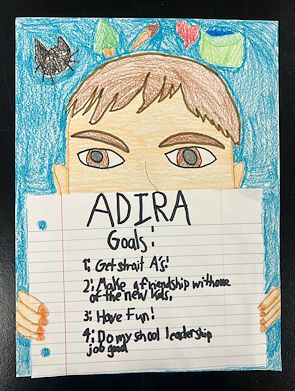 ADIRA
Goals!
1; Get strait A's!
2; Make a friendship with one
of the new kids,
3: Have Fun!
4; Do my shool leadership
job good